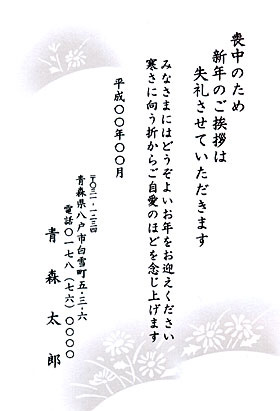 喪中のため
新年のご挨拶は
失礼させていただきます
みなさまにはどうぞよいお年をお迎えください
寒さに向う折からご自愛のほどを念じ上げます
平成〇〇年〇〇月
〒〇三一-一二三四
青森県八戸市白雪町五-三-六
電話〇一七八(七六)〇〇〇〇
青森太郎